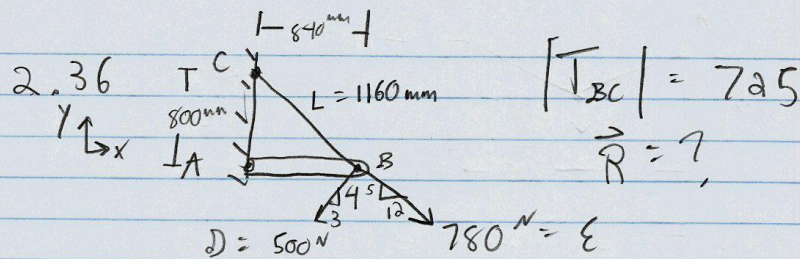 840mm
2.36
T C
L = 1160mm
|T BC| = 725
800mm
Y
x
A
B
R = ?
4 5
3
12
D = 500 N
780 N = ε